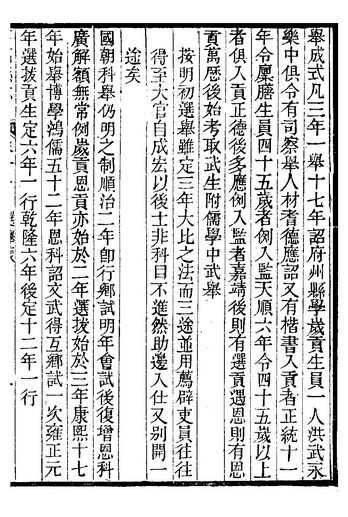 舉成式凡三年一舉十七年詔府州縣學歲貢生員一人洪武永
樂中俱令有司察舉人材耆德應詔又有楷書入貢者正統十一
年令廩膳生員四十五歲者例入監天順六年令四十五歲以上
者俱入貢正德後多應例入監者嘉靖後則有選貢遇恩則有恩
貢萬歷後始考取武生附儒學中武舉
按明初選舉雖定三年大比之法而三途並用薦辟吏員往往
得至大官自成宏以後士非科目不進然助邊入仕又別開一
途矣
國朝科舉仍明之制順治二年卽行鄉試明年會試後復增恩科
廣解額無常例歲貢恩貢亦始於二年選拔始於三年康熙十七
年始舉博學鴻儒五十二年恩科詔文武得互鄉試一次雍正元
年選拔貢生定六年一行乾隆六年後定十二年一行